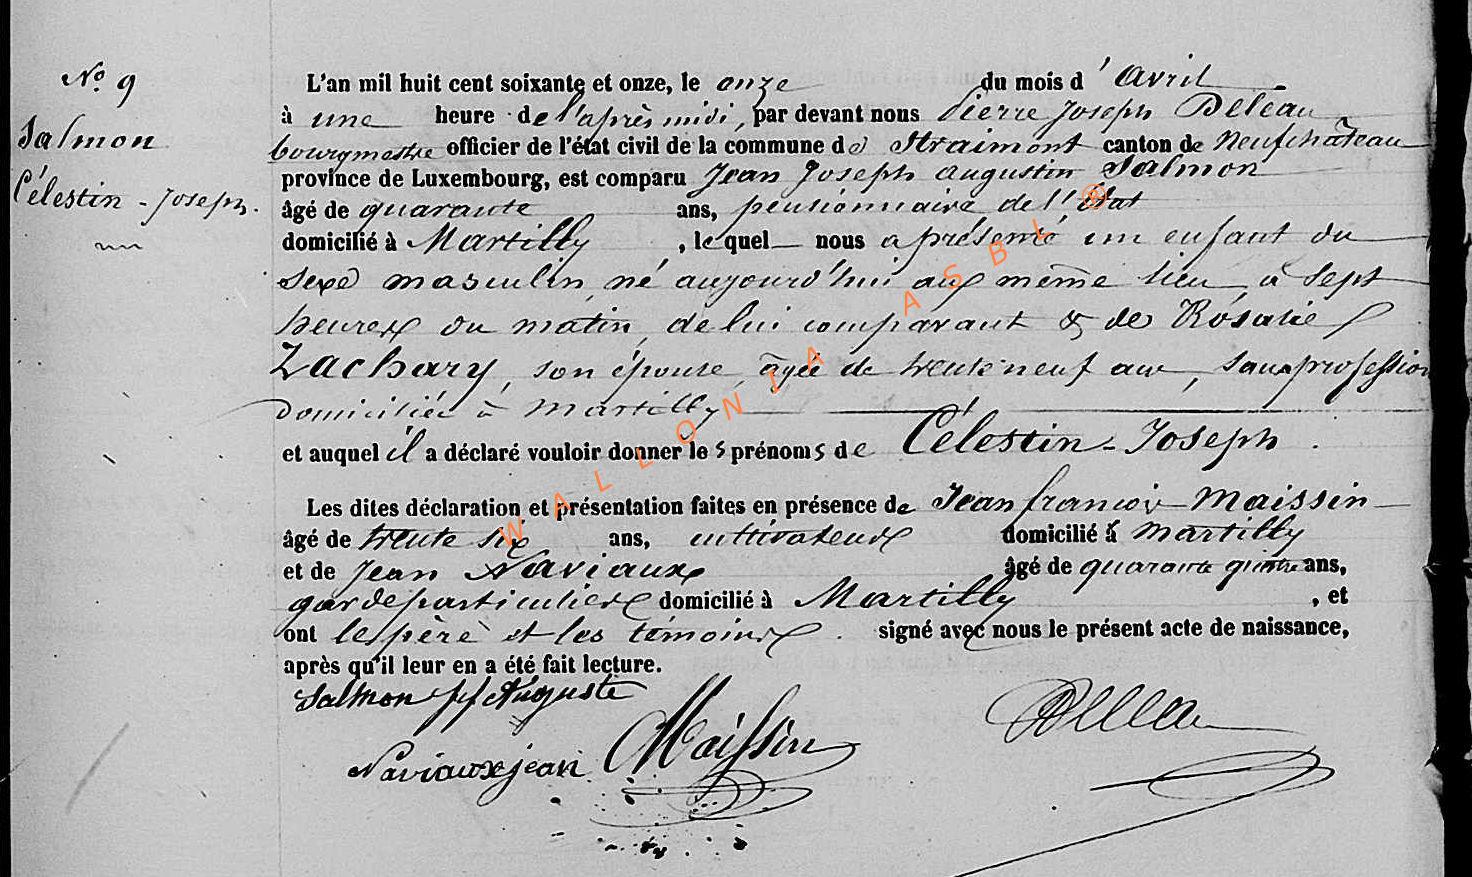 N.o 9
Salmon
Célestin-Joseph.
L'an mil huit cent soixante et onze, le onze du mois d'avril
à une heure de l'après midi, par devant nous Pierre Joseph Deleau
bourgmestre officier de l'état civil de la commune de Straimont canton de Neufchâteau
province de Luxembourg, est comparu Jean Joseph Augustin Salmon
âgé de quarante ans, pensionnaire de l'État
domicilié à Martilly, lequel nous a présenté un enfant du
sexe masculin, né aujourd'hui aux même lieu, à sept
heures du matin, de lui comparant & de Rosalie
Zachary, son épouse, âgée de trente neuf ans, sans profession
domiciliée à Martilly
et auquel il a déclaré vouloir donner les prénoms de Célestin-Joseph.
Les dites déclaration et présentation faites en présence de Jean françois Maissin
âgé de trente six ans, cultivateur domicilié à Martilly
et de Jean Naviaux âgé de quarante quatre ans,
garde particulier domicilié à Martilly, et
ont le père et les témoins signé avec nous le présent acte de naissance,
après qu'il leur en a été fait lecture.
Salmon Auguste
Maissin
Deleau
Naviaux jean
WALLONIA ASBL ®